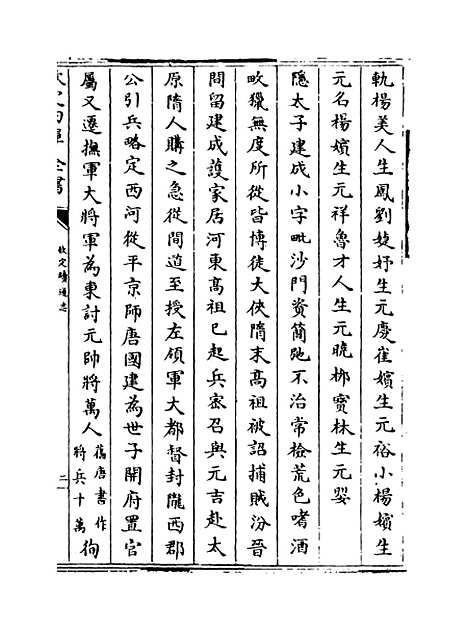 軌楊美人生鳳劉婕妤生元慶崔嬪生元裕小楊嬪生
元名楊嬪生元祥魯才人生元曉柳寳林生元嬰
隠太子建成小字毗沙門資簡弛不治常檢荒色嗜酒
畋獵無度所從皆博徒大俠隋末髙祖被詔捕賊汾晉
間留建成護家居河東髙祖已起兵宻召與元吉赴太
原隋人購之急從間道至授左領軍大都督封隴西郡
公引兵略定西河從平京師唐國建為世子開府置官
屬又遷撫軍大將軍為東討元帥將萬人舊唐書作將兵十萬徇
欽定續通志
二